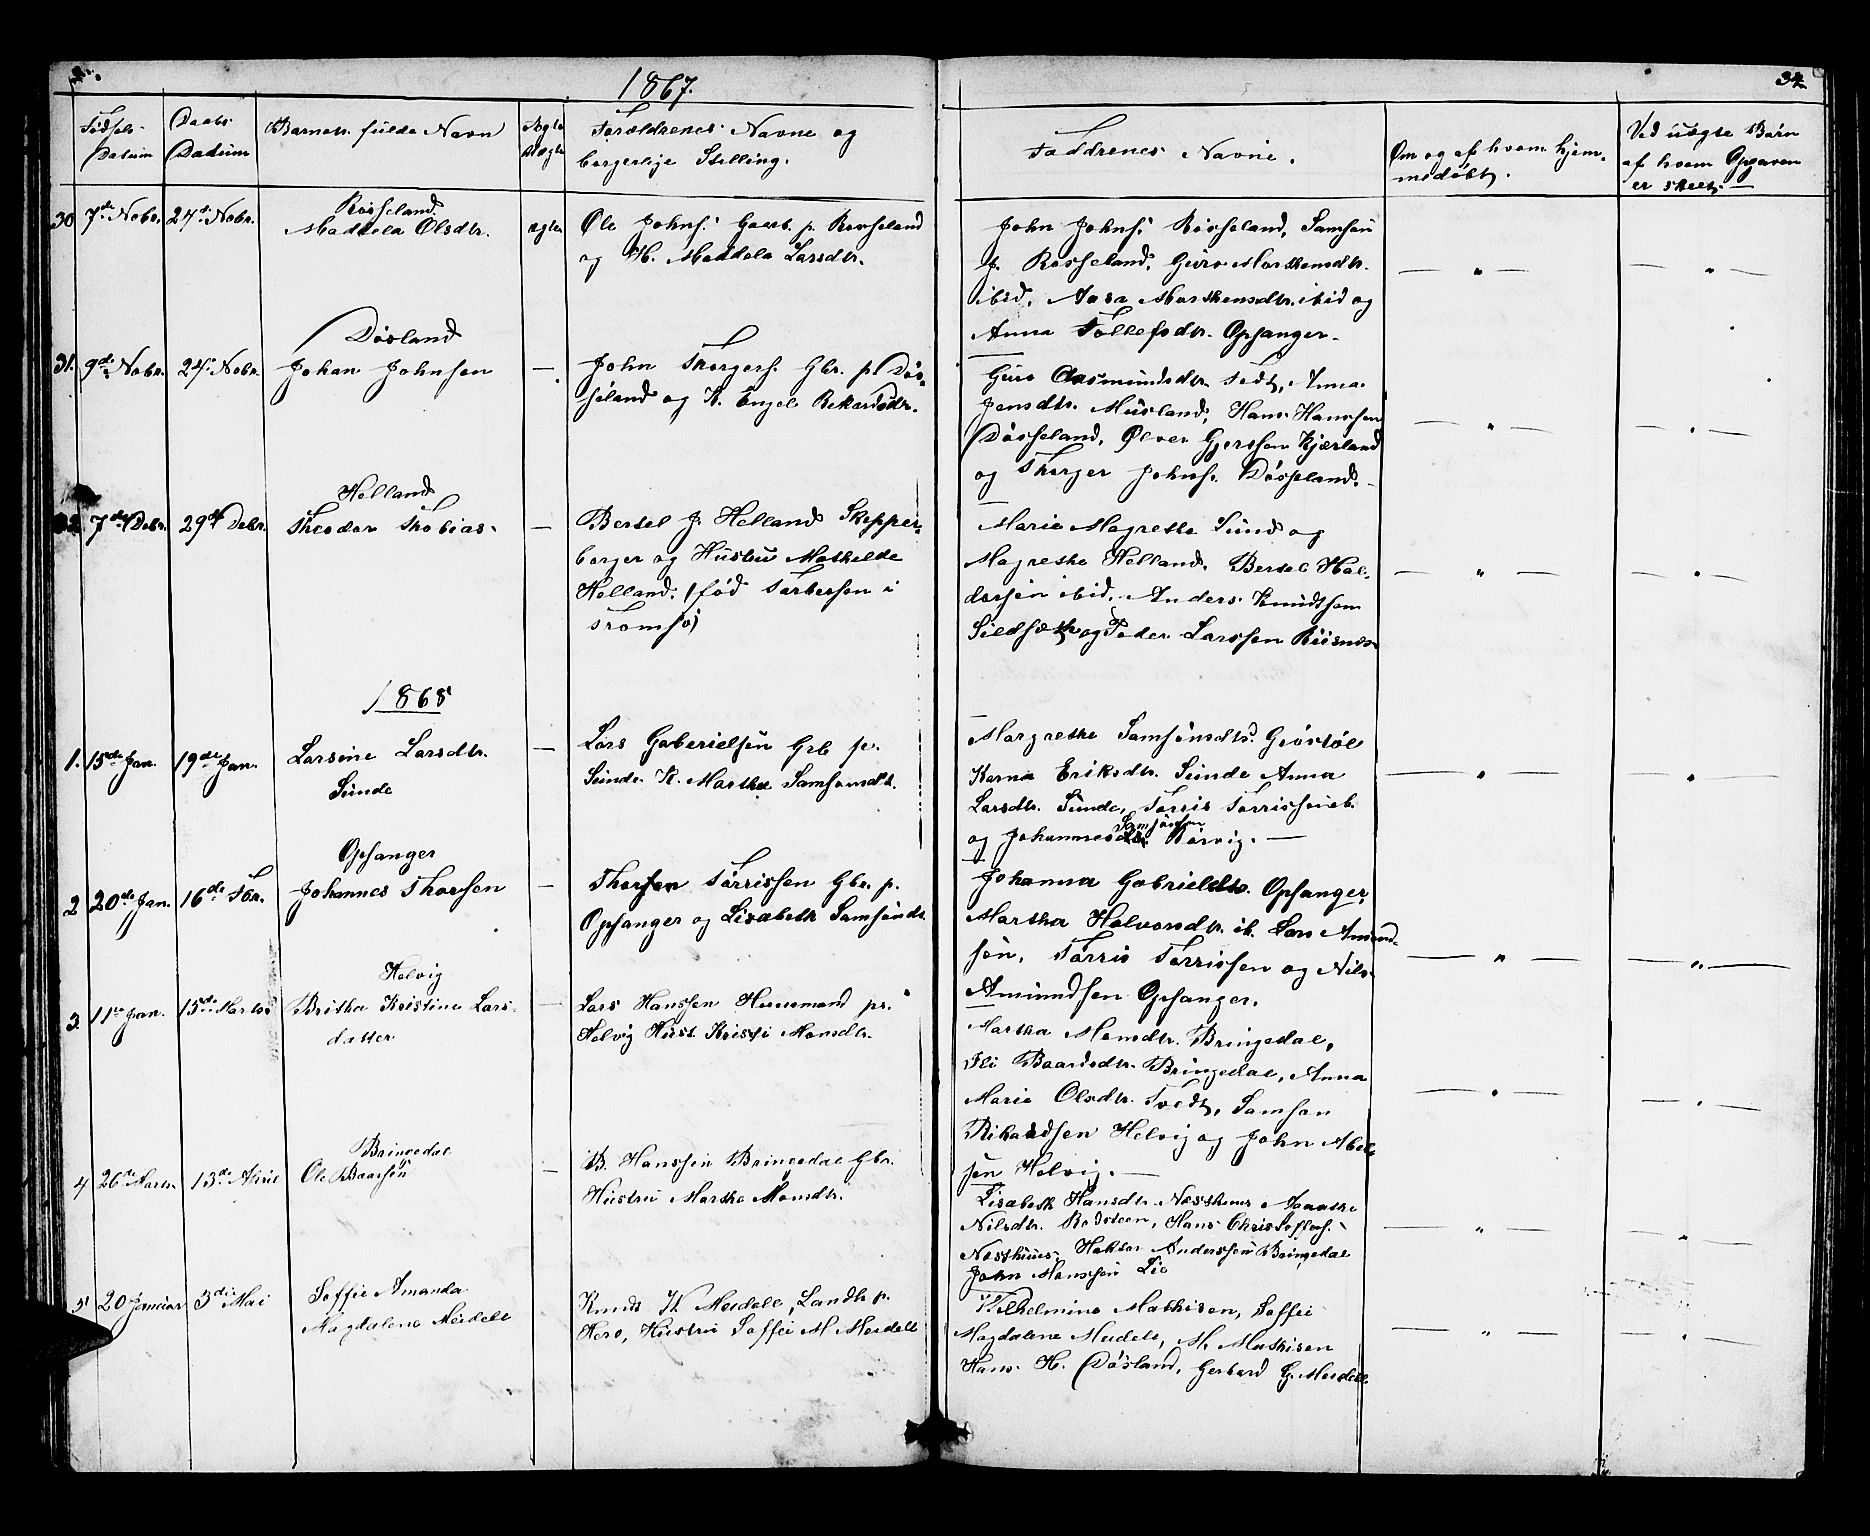 1867.
34
Fødsels-
Datum
Daabs
Datum
Barnets fulde Navn
Ægte
Uægte
Forældrenes Navne og
borgerlige Stilling.
Faddrenes Navne.
Om og af hvem hjem-
medøbt.
Ved uægte Børn
af hvem Opgaven
er skeet
30 7de Nobr. 24de Nobr.
Røsseland
Madela Olsdtr.
ægte
Ole Johns. Gaardb. p. Røsseland
og H. Madela Larsdtr.
John Johns. Røsseland, Samson
J. Røsseland, Guro Mortensdtr.
ibid, Aasa Mortensdtr. ibid og
Anna Tollefsdtr. Opsanger.
31. 9de Nobr. 24. Nobr.
Døsland
Johan Johnsen
—
John Thorgers. Gbr. p. Døs-
seland og K. Engel Rekardsdr.
Guro Aasmundsdtr. Tedt, Anna
Jensdtr. Musland, Hans Hanssen
Døsseland, Ølver Gjerssen Kjærland
og Thorger Johns. Døsseland.
32. 7de Debr. 29de Debr.
Helland
Theodor Thobias
—
Bertel J. Helland Skipper
borger og Hustru Mathilde
Helland: (fød Torbersen i
Tromsø)
Marie Magrette Sund og
Magrethe Helland, Bertel Hal-
dorsen ibid. Anders Knudtsen
Sildsæth og Peder Larssen Riisnæs
1868
1. 15de Jan. 19de Jan.
Larsine Larsdtr.
Sunde
—
Lars Gaberielsen Grb p.
Sunde. K. Martha Samsonsdt.
Margrethe Samsonsdtr. Gröstøl
Karna Eriksdtr. Sunde Anna
Larsdtr. Sunde, Torris Torrissen ib.
Samsonsen
og Johannes Nørvig.
2 20de Jan. 16de Fbr.
Opsanger
Johannes Thorsen
—
Thorsen Torrissen Gbr. p.
Opsanger og Lisabeth Samsonsdt.
Johanna Gabrieldtr. Opsanger,
Martha Halvorsdtr. ib. Lars Amund-
sen, Torris Torrissen og Nils
Amundsen Opsanger.
3. 11te Jan. 15de Marts
Helvig
Britha Kristine Lars-
datter
—
Lars Hanssen Huusmand pr.
Helvig Hust. Kristi Monsdtr.
Martha Monsdtr. Bringedal,
Eli Baardsdtr. Bringedal, Anna
Marie Olsdtr. Tvedt, Samson
Rikardsen Helvig og John Abel-
sen Helvig.
4 26de Marts 13de April
Bringedal
Ole Baarsen
—
B. Hanssen Bringedal Gbr.
Hustru Martha Monsdtr.
Lisabeth Hansdtr. Næsthuus
Nilsdtr. Rødsteen, Hans Christoffers.
Næsthuus, Anderssen Bringedal
John Monssen Lie
5 20 Januar 3die Mai
Soffie Amanda
Magdalena Meidell
Knud Meidell, Landh. p.
Hero, Hustru Soffie M Meidell
Wilhelmine Mathisen, Soffie
Magdalene Meidell, M. Mathisen
Hans H. Døsland, Gerhard G. Meidell